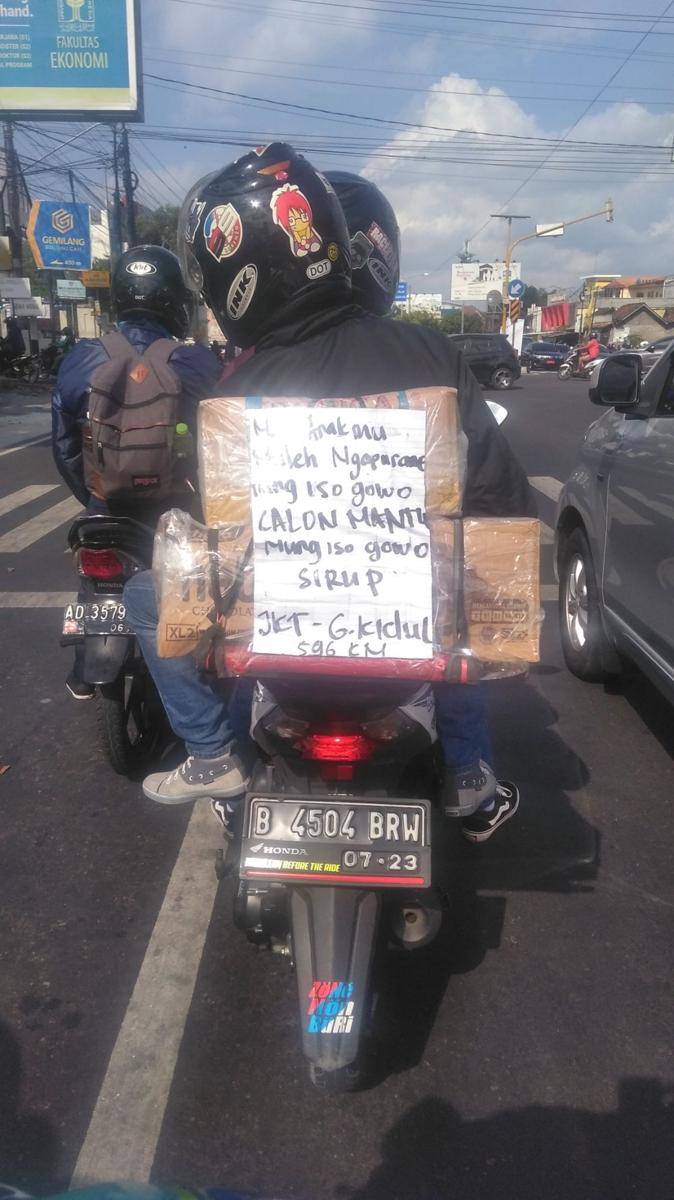 hand.
FAKULTAS
EKONOMI
GEMILANG
INK
DOT
INK
KYT
M. Anakmu
Muleh Ngapurane
mung iso gowo
CALON MANTU
mung iso gowo
SIRUP
JKT - G. Kidul
596 KM
XL2
JANSPORT
HONDA
AD 3579
06
B 4504 BRW
HONDA
BEFORE THE RIDE
07·23